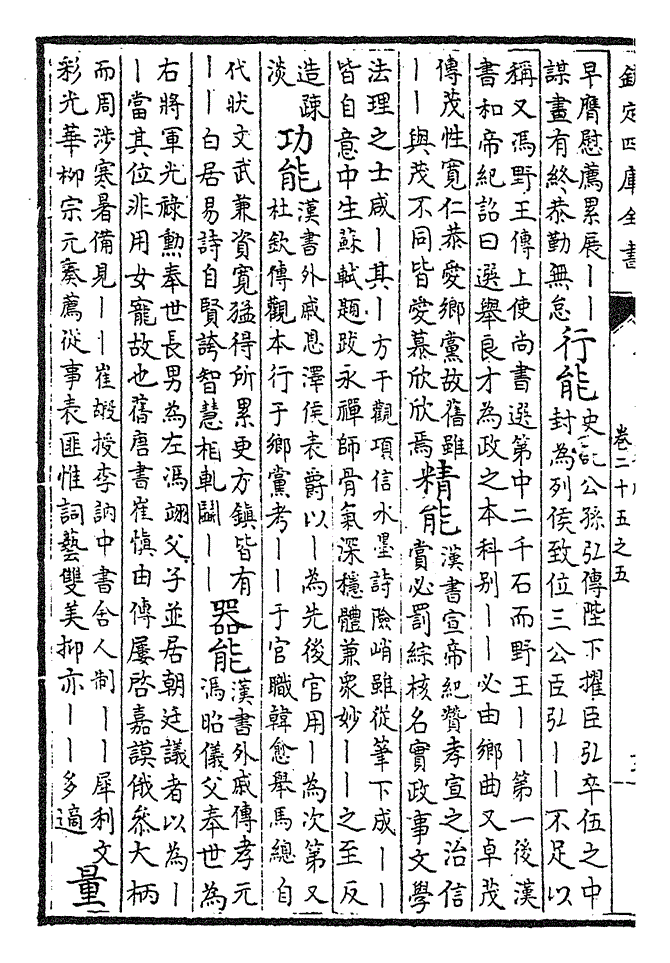 欽定四庫全書
卷二十五之五
早膺慰薦累展丨丨
謀畫有終恭勤無怠
行能
史記公孫弘傳陛下擢臣弘卒伍之中
封為列侯致位三公臣弘丨丨不足以
稱又馮野王傳上使尚書選第中二千石而野王丨丨第一後漢
書和帝紀詔曰選舉良才為政之本科别丨丨必由鄉曲又卓茂
傳茂性寬仁恭愛鄉黨故舊雖
丨丨與茂不同皆愛慕欣欣焉
精能
漢書宣帝紀贊孝宣之治信
賞必罰綜核名實政事文學
法理之士咸丨其丨方干觀項信水墨詩險峭雖從筆下成丨丨
皆自意中生蘇軾題跋永禪師骨氣深穩體兼衆妙丨丨之至反
造疎
淡
功能
漢書外戚恩澤侯表爵以丨為先後官用丨為次第又
杜欽傳觀本行于鄉黨考丨丨于官職韓愈舉馬總自
代狀文武兼資寬猛得所累更方鎮皆有
丨丨白居易詩自賢誇智慧相軋鬬丨丨
器能
漢書外戚傳孝元
馮昭儀父奉世為
右將軍光祿勲奉世長男為左馮翊父子並居朝廷議者以為丨
丨當其位非用女寵故也舊唐書崔慎由傳屢啓嘉謨俄參大柄
而周涉寒暑備見丨丨崔嘏授李訥中書舍人制丨丨犀利文
彩光華柳宗元奏薦從事表匪惟詞藝雙美抑亦丨丨多適
量